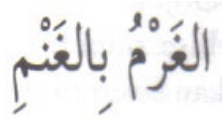 الغَرْمُ بِالغَنْمِ